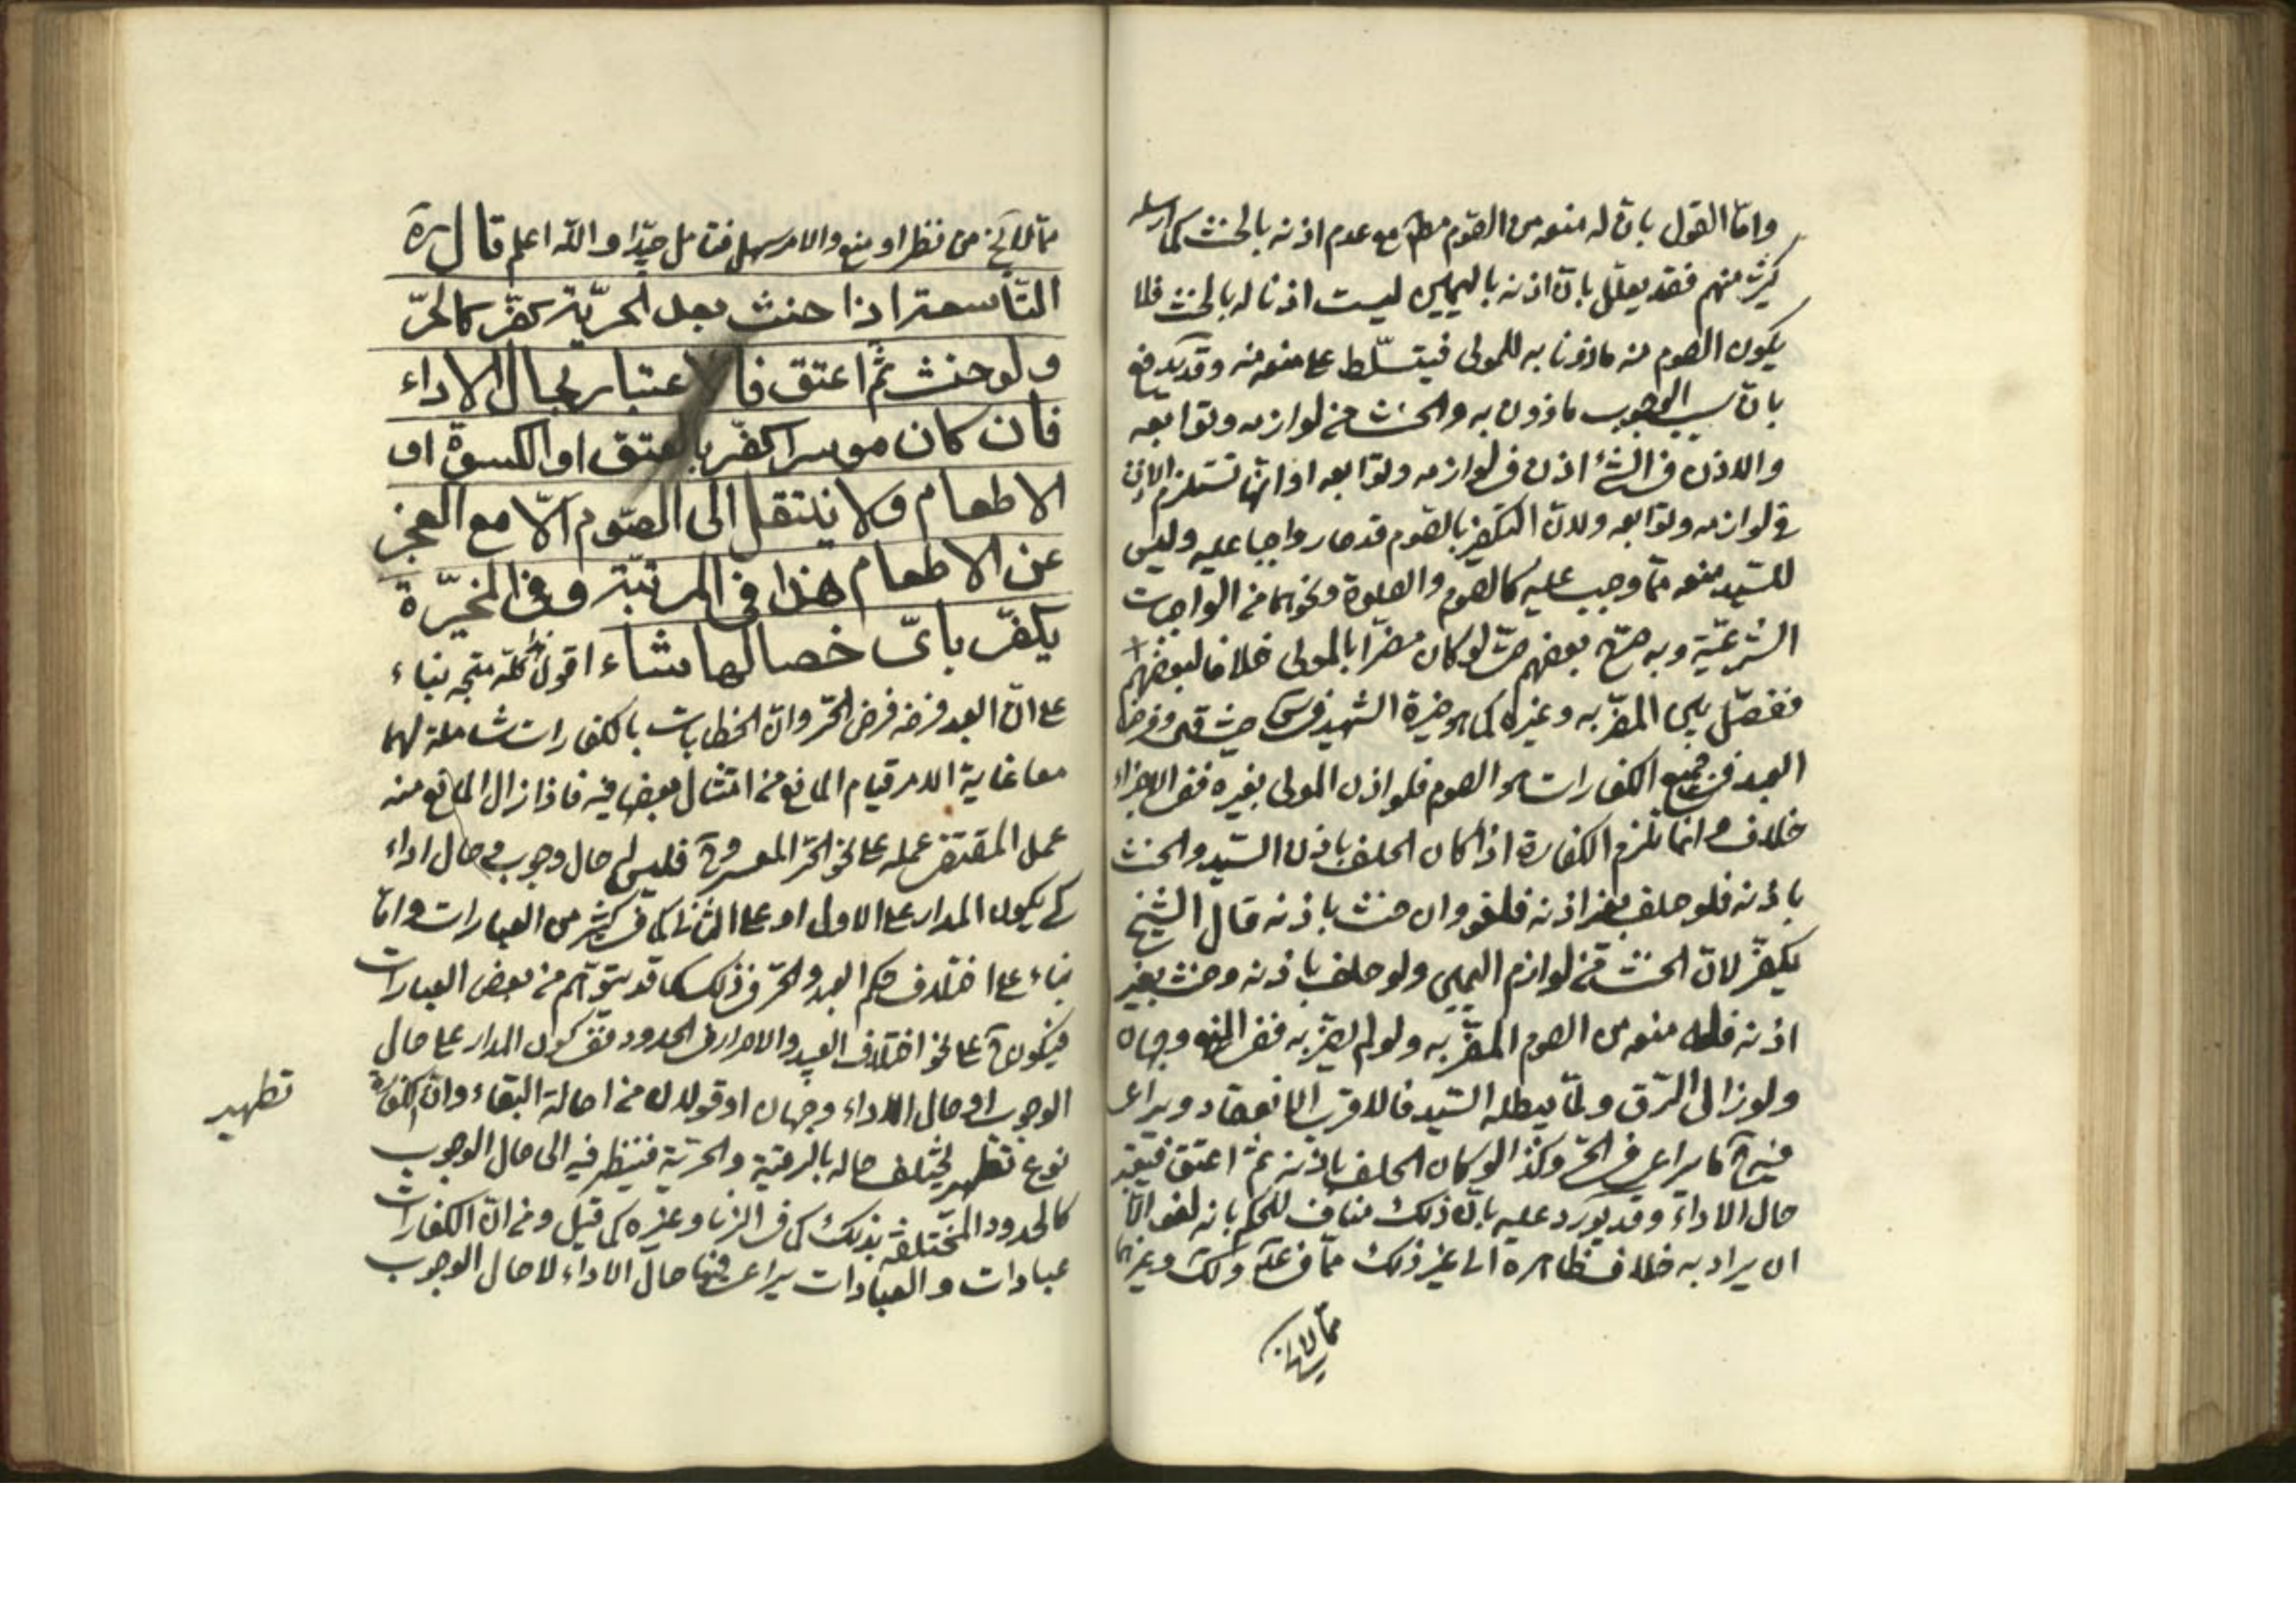 واما القول بان له منعه من الصوم مطم مع عدم اذنه بالحنث كما ارسله
كثير منهم فقد يعلل بان اذنه باليمين ليست اذنا له بالحنث فلا
يكون الصوم منه ماذونا به للمولى فيتسلط على منعه منه وقد يدفع
بان سبب الوجوب ماذون به والحنث من لوازمه وتوابعه
والاذن في الشئ اذن في لوازمه وتوابعه او انها تستلزم الاذن
في لوازمه وتوابعه ولان التكفير بالصوم قد صار واجبا عليه وليس
للسيد منعه مما وجب عليه كالصوم والصلوة ونحوهما من الواجبات
الشرعية وبه صرح بعضهم حتى لو كان مضرا بالمولى خلافا لبعضهم
ففصل بين المضر به وغيره كما هو خيرة الشهيد في س حيث قال وفرض
العبد في جميع الكفارات هو الصوم فلو اذن المولى بغيره ففي الاجزاء
خلاف وانما تلزم الكفارة اذا كان الحلف باذن السيد والحنث
باذنه فلو حلف بغير اذنه فلغو وان حنث باذنه قال الشيخ
يكفر لان الحنث من لوازم اليمين ولو حلف باذنه وحنث بغير
اذنه فله منعه من الصوم المضر به ولو لم يضر به ففي المنع وجهان
ولو زال الرق ولما يبطله السيد فالاقرب الانعقاد ويراعى
فيه ح ما يراعى في الحر وكذا لو كان الحلف باذنه ثم اعتق فيعتبر
حال الاداء وقد يورد عليه بان ذلك مناف للحكم بانه لغو الا
ان يراد به خلاف ظاهره الى غير ذلك مما في عد ولك وغيرهما
مما لا يخ
مما لا يخ من نظر او منع والامر سهل فتامل جيدا والله اعلم قال ره
التاسعة اذا حنث بعد الحرية كفر كالحر
ولو حنث ثم اعتق فالاعتبار بحال الاداء
فان كان موسرا كفر بالعتق او الكسوة او
الاطعام ولا ينتقل الى الصوم الا مع العجز
عن الاطعام هذا في المرتبة وفي المخيرة
يكفر باي خصالها شاء اقول هذا كله متجه بناء
على ان العبد فرضه فرض الحر وان الخطابات بالكفارات شاملة لهما
معا غاية الامر قيام المانع من امتثال بعضها فيه فاذا زال المانع منه
عمل المقتضى عمله على نحو الحر المعسر وح فليس له حال وجوب وحال اداء
كي يكون المدار على الاول او على الثاني كما في كثير من العبارات واما
بناء على اختلاف حكم العبد والحر في ذلك كما قد يتوهم من بعض العبارات
فيكون ح على نحو اختلاف العبيد والاحرار في الحدود ففي كون المدار على حال
الوجوب او حال الاداء وجهان او قولان من اصالة البقاء وان الكفارة
نوع تطهير يختلف حاله بالرقية والحرية فينظر فيه الى حال الوجوب
كالحدود المختلفة بذلك كما في الزنا وغيره كما قيل ومن ان الكفارات
عبادات والعبادات يراعى فيها حال الاداء لا حال الوجوب
تطهير